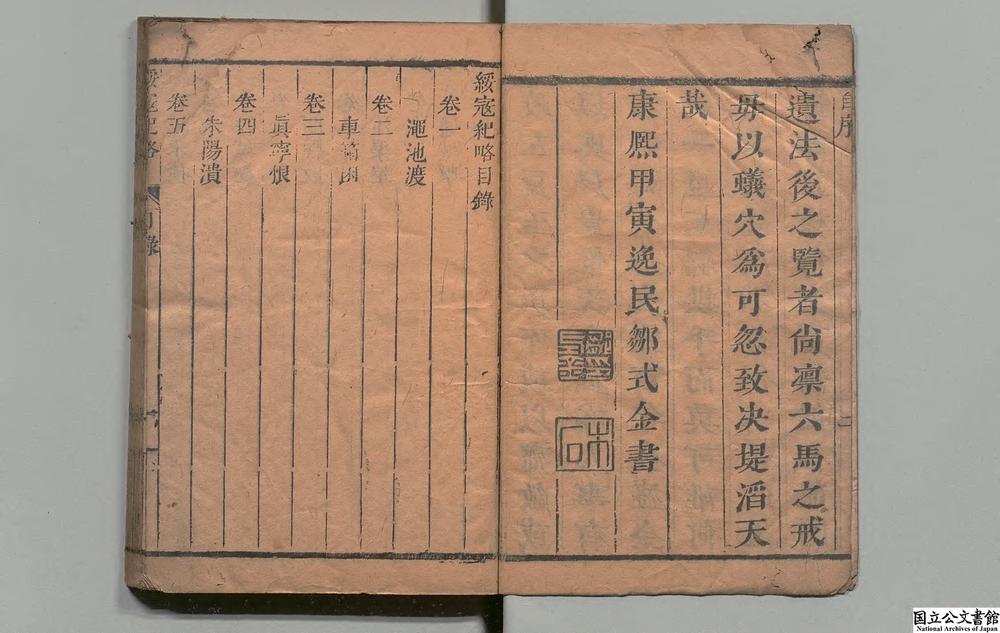 遺法後之覽者尙凛六馬之戒
毋以蟻穴爲可忽致决堤滔天
哉
康熈甲寅逸民鄒式金書
木石
綏寇紀略目錄
卷一
澠池渡
卷二
車箱困
卷三
眞寧恨
卷四
朱陽潰
卷五
綏寇紀略
目錄
一
国立公文書館
National Archives of Japan